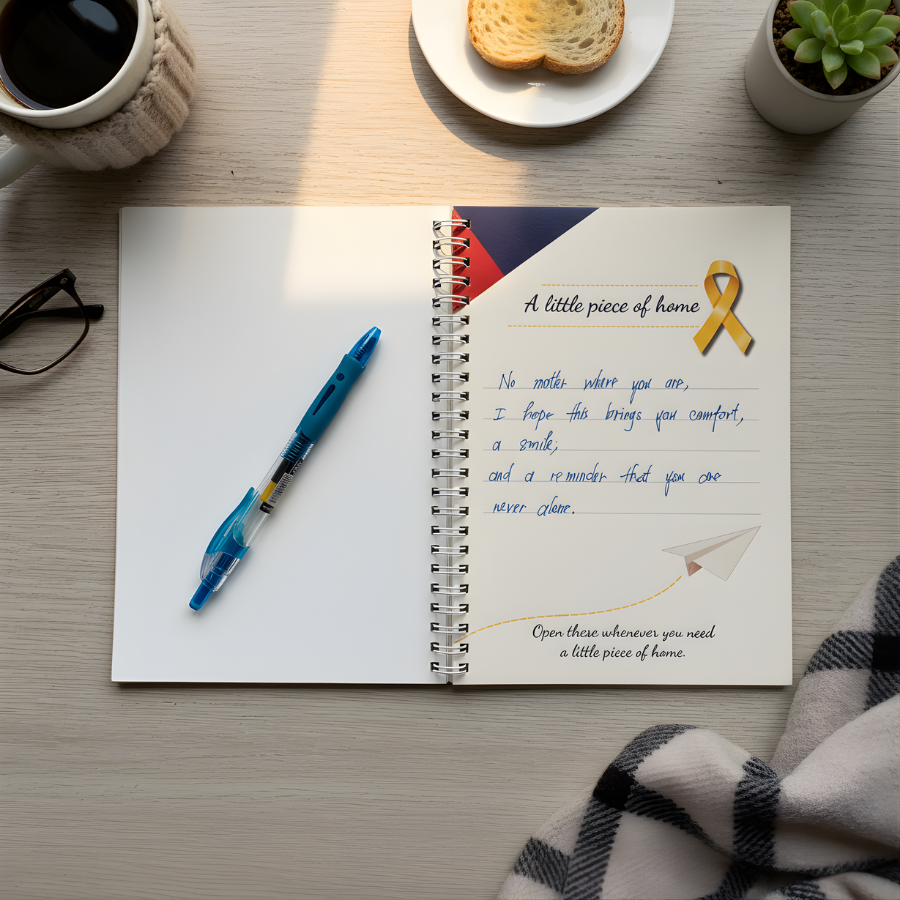 A little piece of home
No matter where you are,
I hope this brings you comfort,
a smile,
and a reminder that you are
never alone.
Open these whenever you need
a little piece of home.